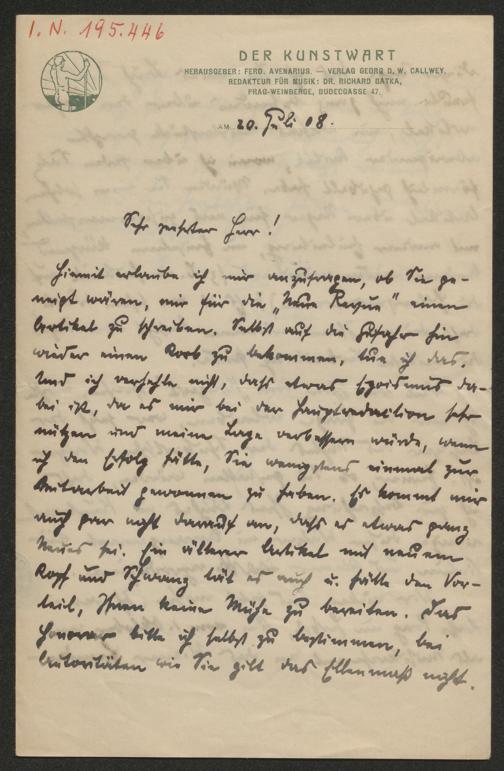 I. N. 195.446
DER KUNSTWART
HERAUSGEBER: FERD. AVENARIUS. — VERLAG GEORG D. W. CALLWEY.
REDAKTEUR FÜR MUSIK: DR. RICHARD BATKA,
PRAG-WEINBERGE, BUDECGASSE 47.
AM 20. Juli 08.
Sehr geehrter Herr!
Hiemit erlaube ich mir anzufragen, ob Sie ge-
neigt wären, mir für die „Neue Revue" einen
Artikel zu schreiben. Selbst auf die Gefahr hin
wieder einen Korb zu bekommen, tue ich das.
Und ich verhehle nicht, dass etwas Egoismus da-
bei ist, da es mir bei der Hauptredaction sehr
nützen und meine Lage verbessern würde, wenn
ich den Erfolg hätte, Sie wenigstens einmal zur
Mitarbeit gewonnen zu haben. Es kommt mir
auch gar nicht darauf an, dass es etwas ganz
Neues sei. Ein älterer Artikel mit neuem
Kopf und Schwanz tät es auch u. hätte den Vor-
teil, Ihnen keine Mühe zu bereiten. Das
Honorar bitte ich selbst zu bestimmen, bei
Autoritäten wie Sie gilt das Ellenmaß nicht.